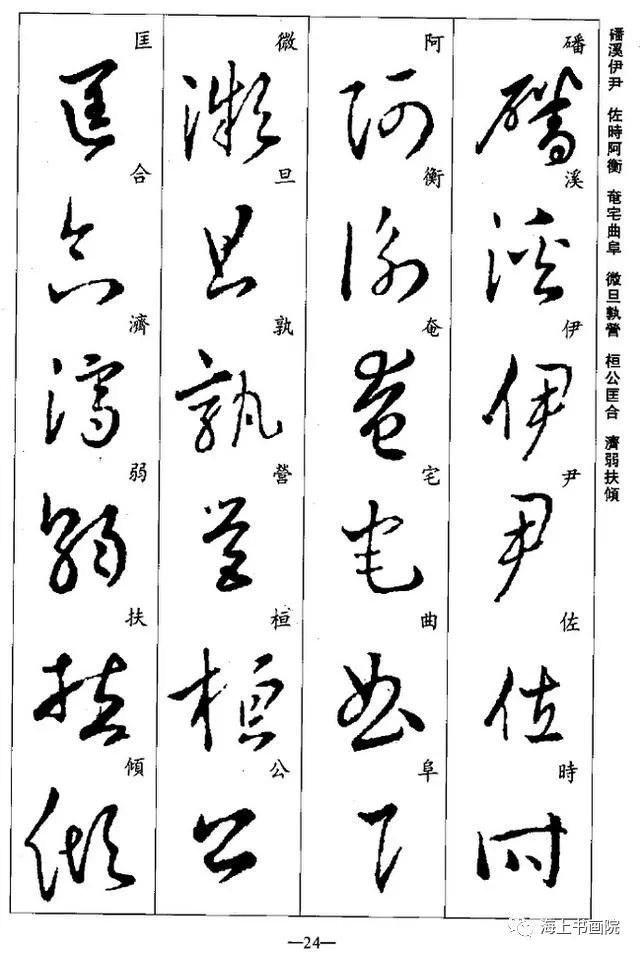 磻溪伊尹 佐時阿衡 奄宅曲阜 微旦孰營 桓公匡合 濟弱扶傾
磻溪伊尹佐時
阿衡奄宅曲阜
微旦孰營桓公
匡合濟弱扶傾
—24—
海上书画院